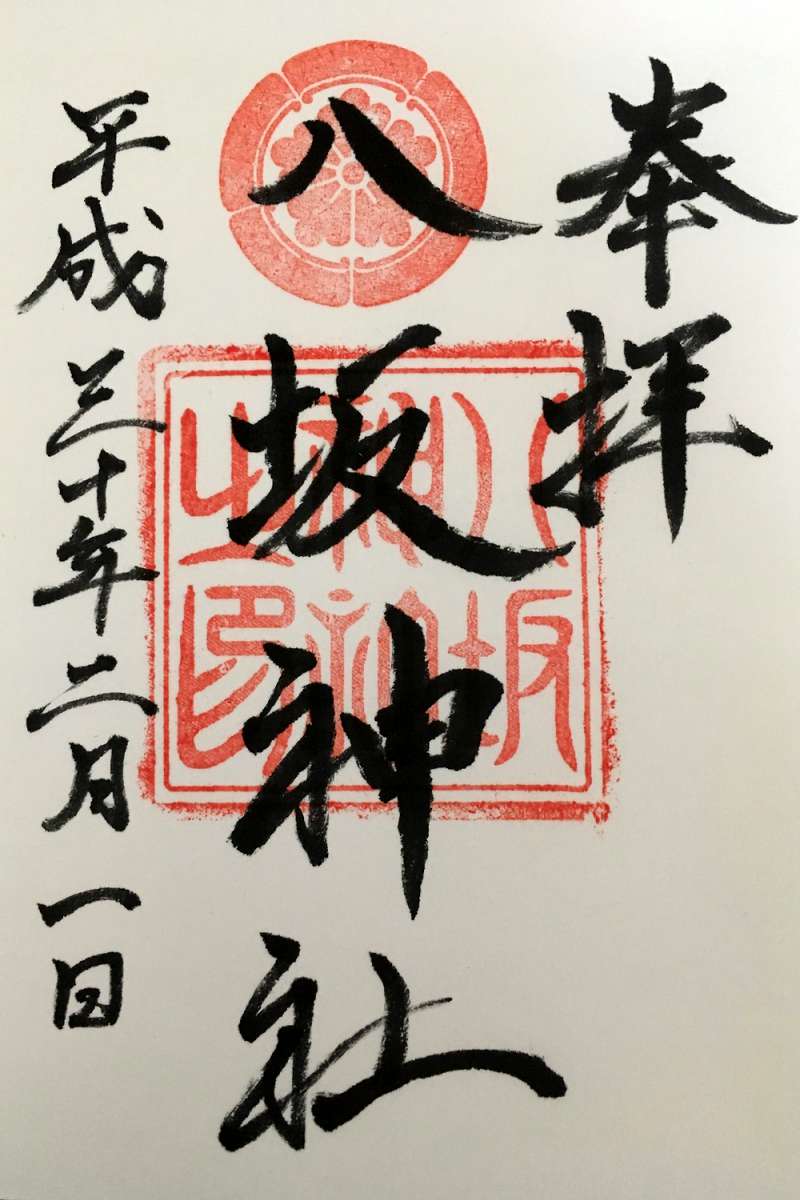 奉拝
八坂神社
平成三十年二月一日
八坂
神社
之印